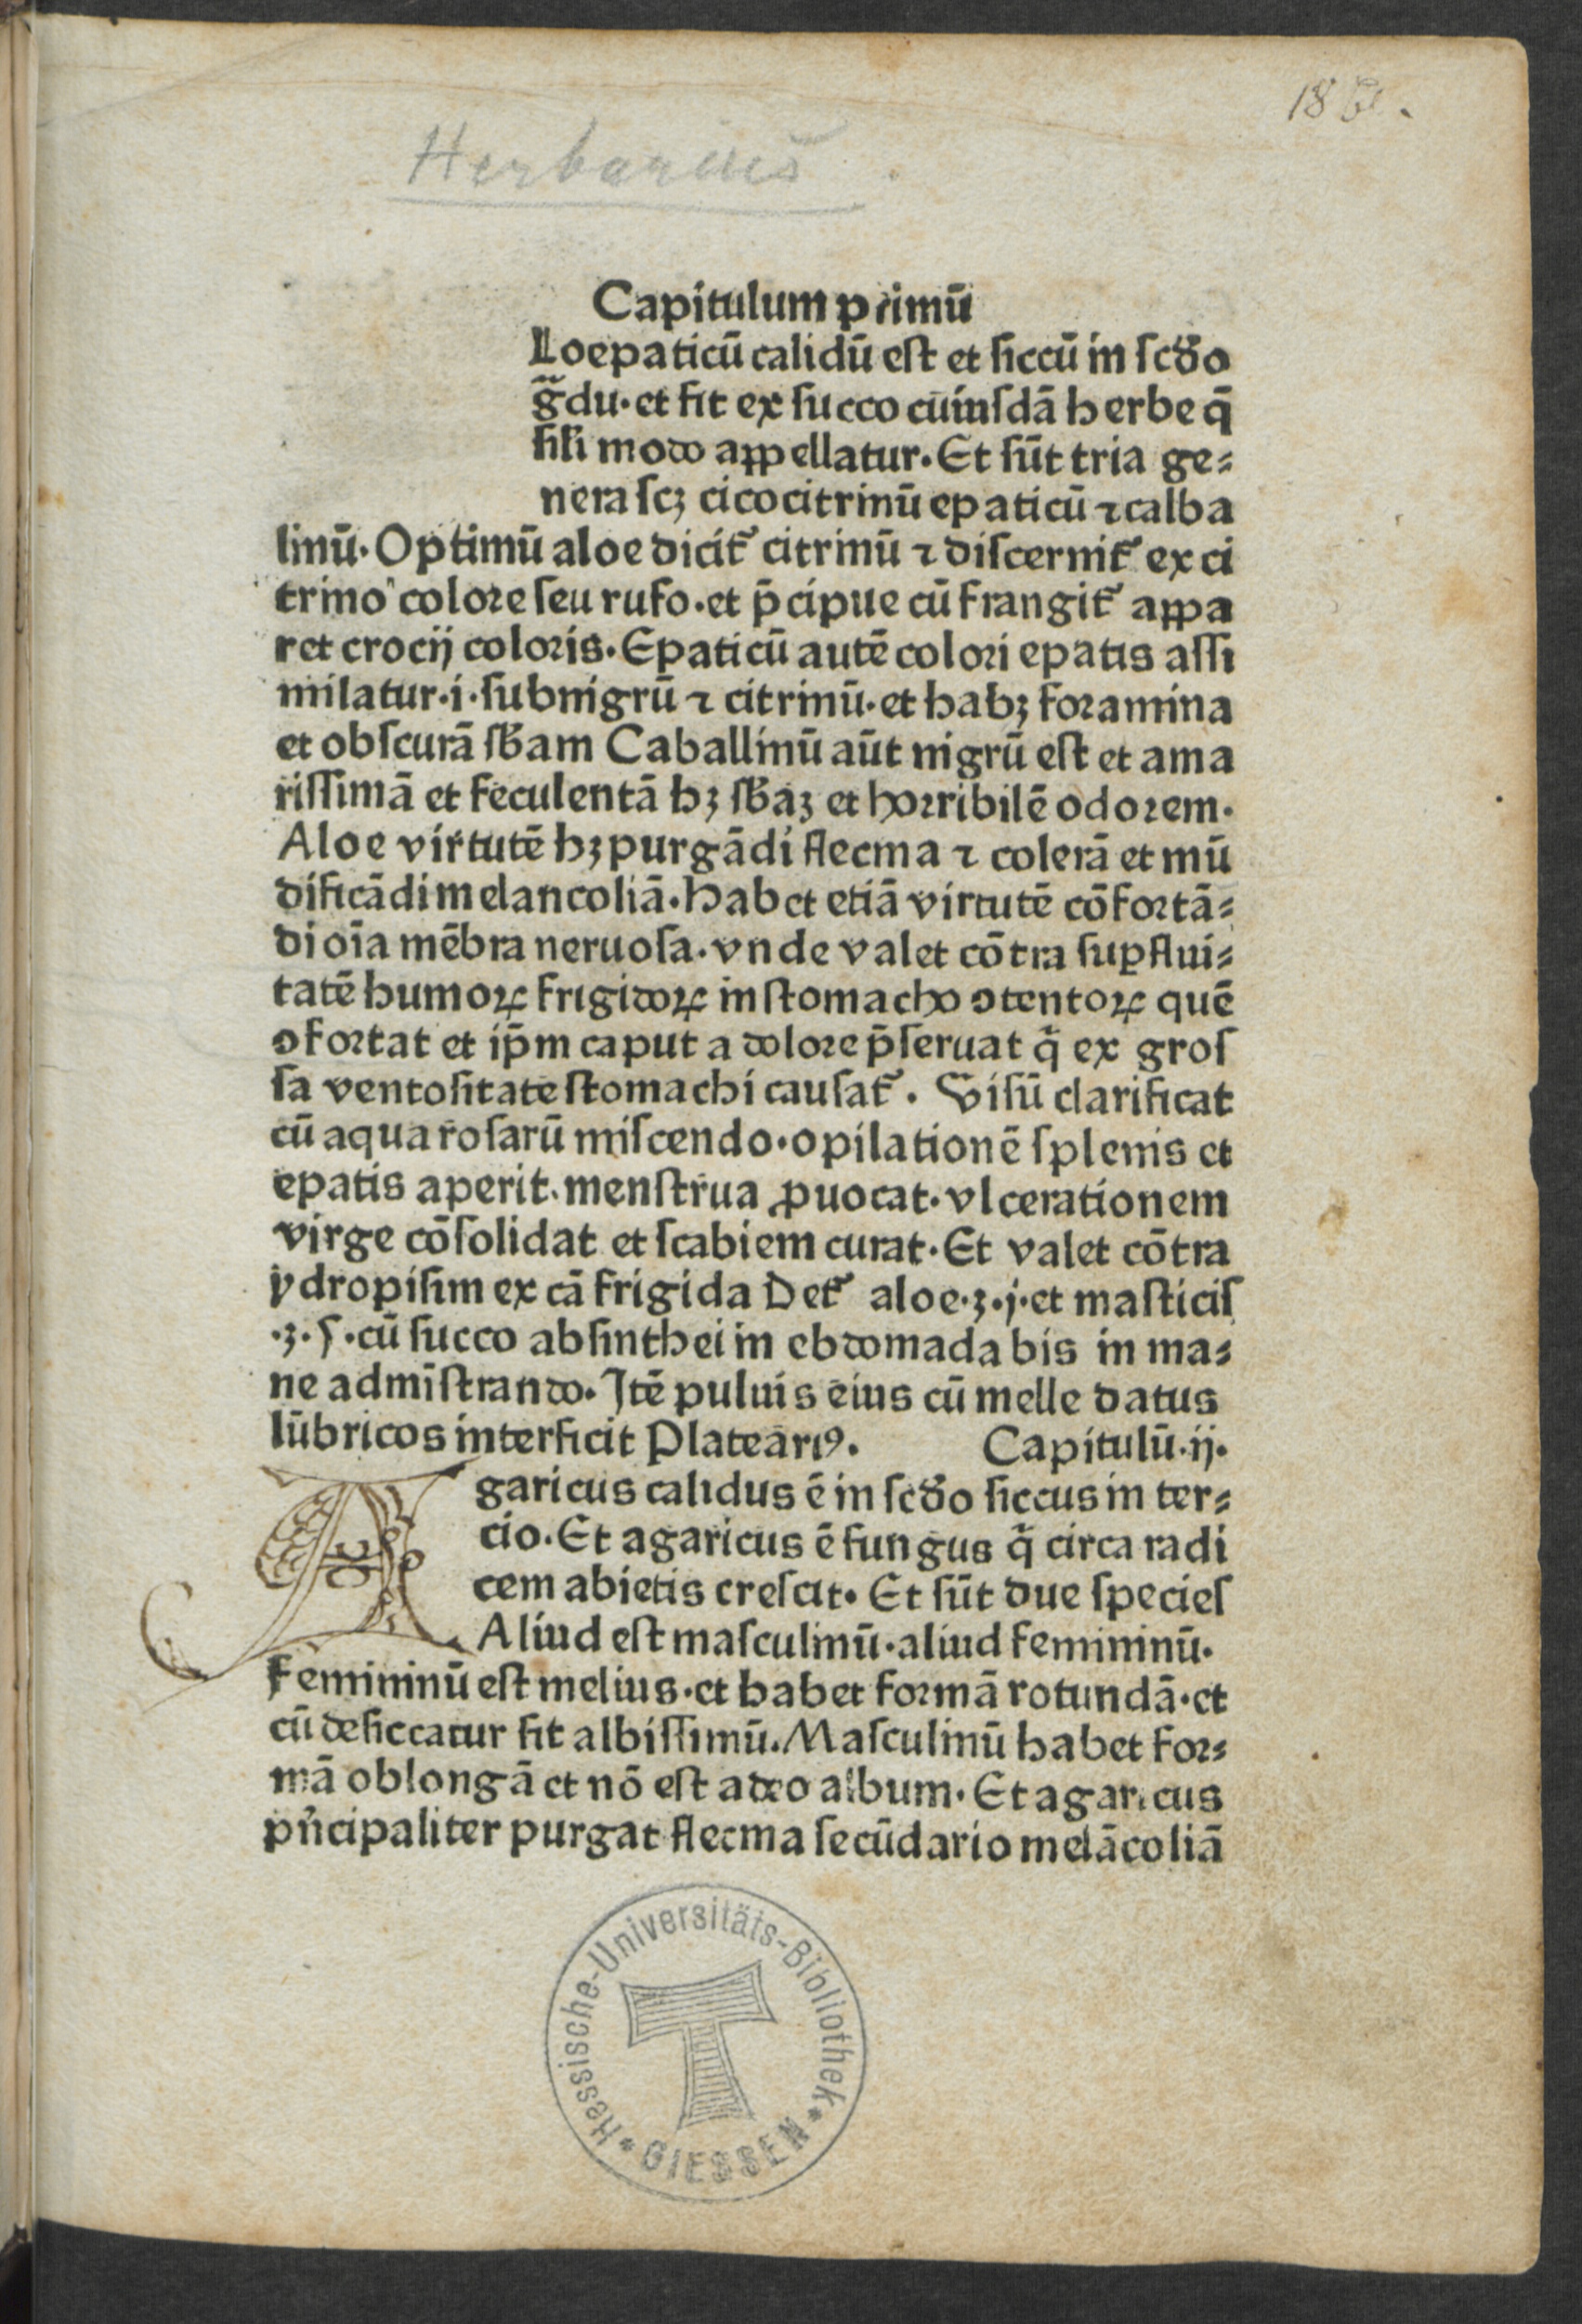 Herbarius
Capitulum primū
Loepaticū calidū eſt et ſiccū in ſcd̄o
g̃du. et fit ex ſucco cuiuſdā herbe q̄
ſili modo appellatur. Et ſūt tria ge⸗
nera ſcꝫ cicocitrinū epaticū ⁊ calba
linū. Optimū aloe dicit᷑ citrinū ⁊ diſcernit᷑ ex ci
trino colore ſeu rufo. et p̄cipue cū frangit᷑ appa
ret crocij coloris. Epaticū autē colori epatis aſſi
milatur .i. ſubnigrū ⁊ citrinū. et habꝫ foramina
et obſcurā ſb̄am Caballinū aūt nigrū eſt et ama
riſſimā et feculentā hꝫ ſb̄aꝫ et horribilē odorem.
Aloe virtutē hꝫ purgādi flecma ⁊ colerā et mū
dificādi melancoliā. Habet etiā virtutē cōfortā⸗
di oīa mēbra neruoſa. vnde valet cōtra ſuꝑflui⸗
tatē humoꝝ frigidoꝝ in ſtomacho ↄtentoꝝ quē
ↄfortat et ip̄m caput a dolore p̄ſeruat q̇ ex groſ
ſa ventoſitate ſtomachi cauſat᷑. Viſū clarificat
cū aqua roſarū miſcendo. opilationē ſplenis et
epatis aperit. menſtrua ꝓuocat. vlcerationem
virge cōſolidat et ſcabiem curat. Et valet cōtra
ydropiſim ex cā frigida Det᷑ aloe .ʒ.j. et maſticiſ
.ʒ.ſ. cū ſucco abſinthei in ebdomada bis in ma⸗
ne admīſtrando. Itē puluis eius cū melle datus
lūbricos interficit Plateariꝰ. Capitulū .ij.
Agaricus calidus ē in ſcd̄o ſiccus in ter⸗
cio. Et agaricus ē fungus q̇ circa radi
cem abietis creſcit. Et ſūt due ſpecieſ
Aliud eſt maſculinū. aliud femininū.
Femininū eſt melius. et habet formā rotundā. et
cū deſiccatur fit albiſſimū. Maſculinū habet for⸗
mā oblongā et nō eſt adeo album. Et agaricus
pn̄cipaliter purgat flecma ſecūdario melācoliā
Hessische-Universitäts-Bibliothek
* GIESSEN *